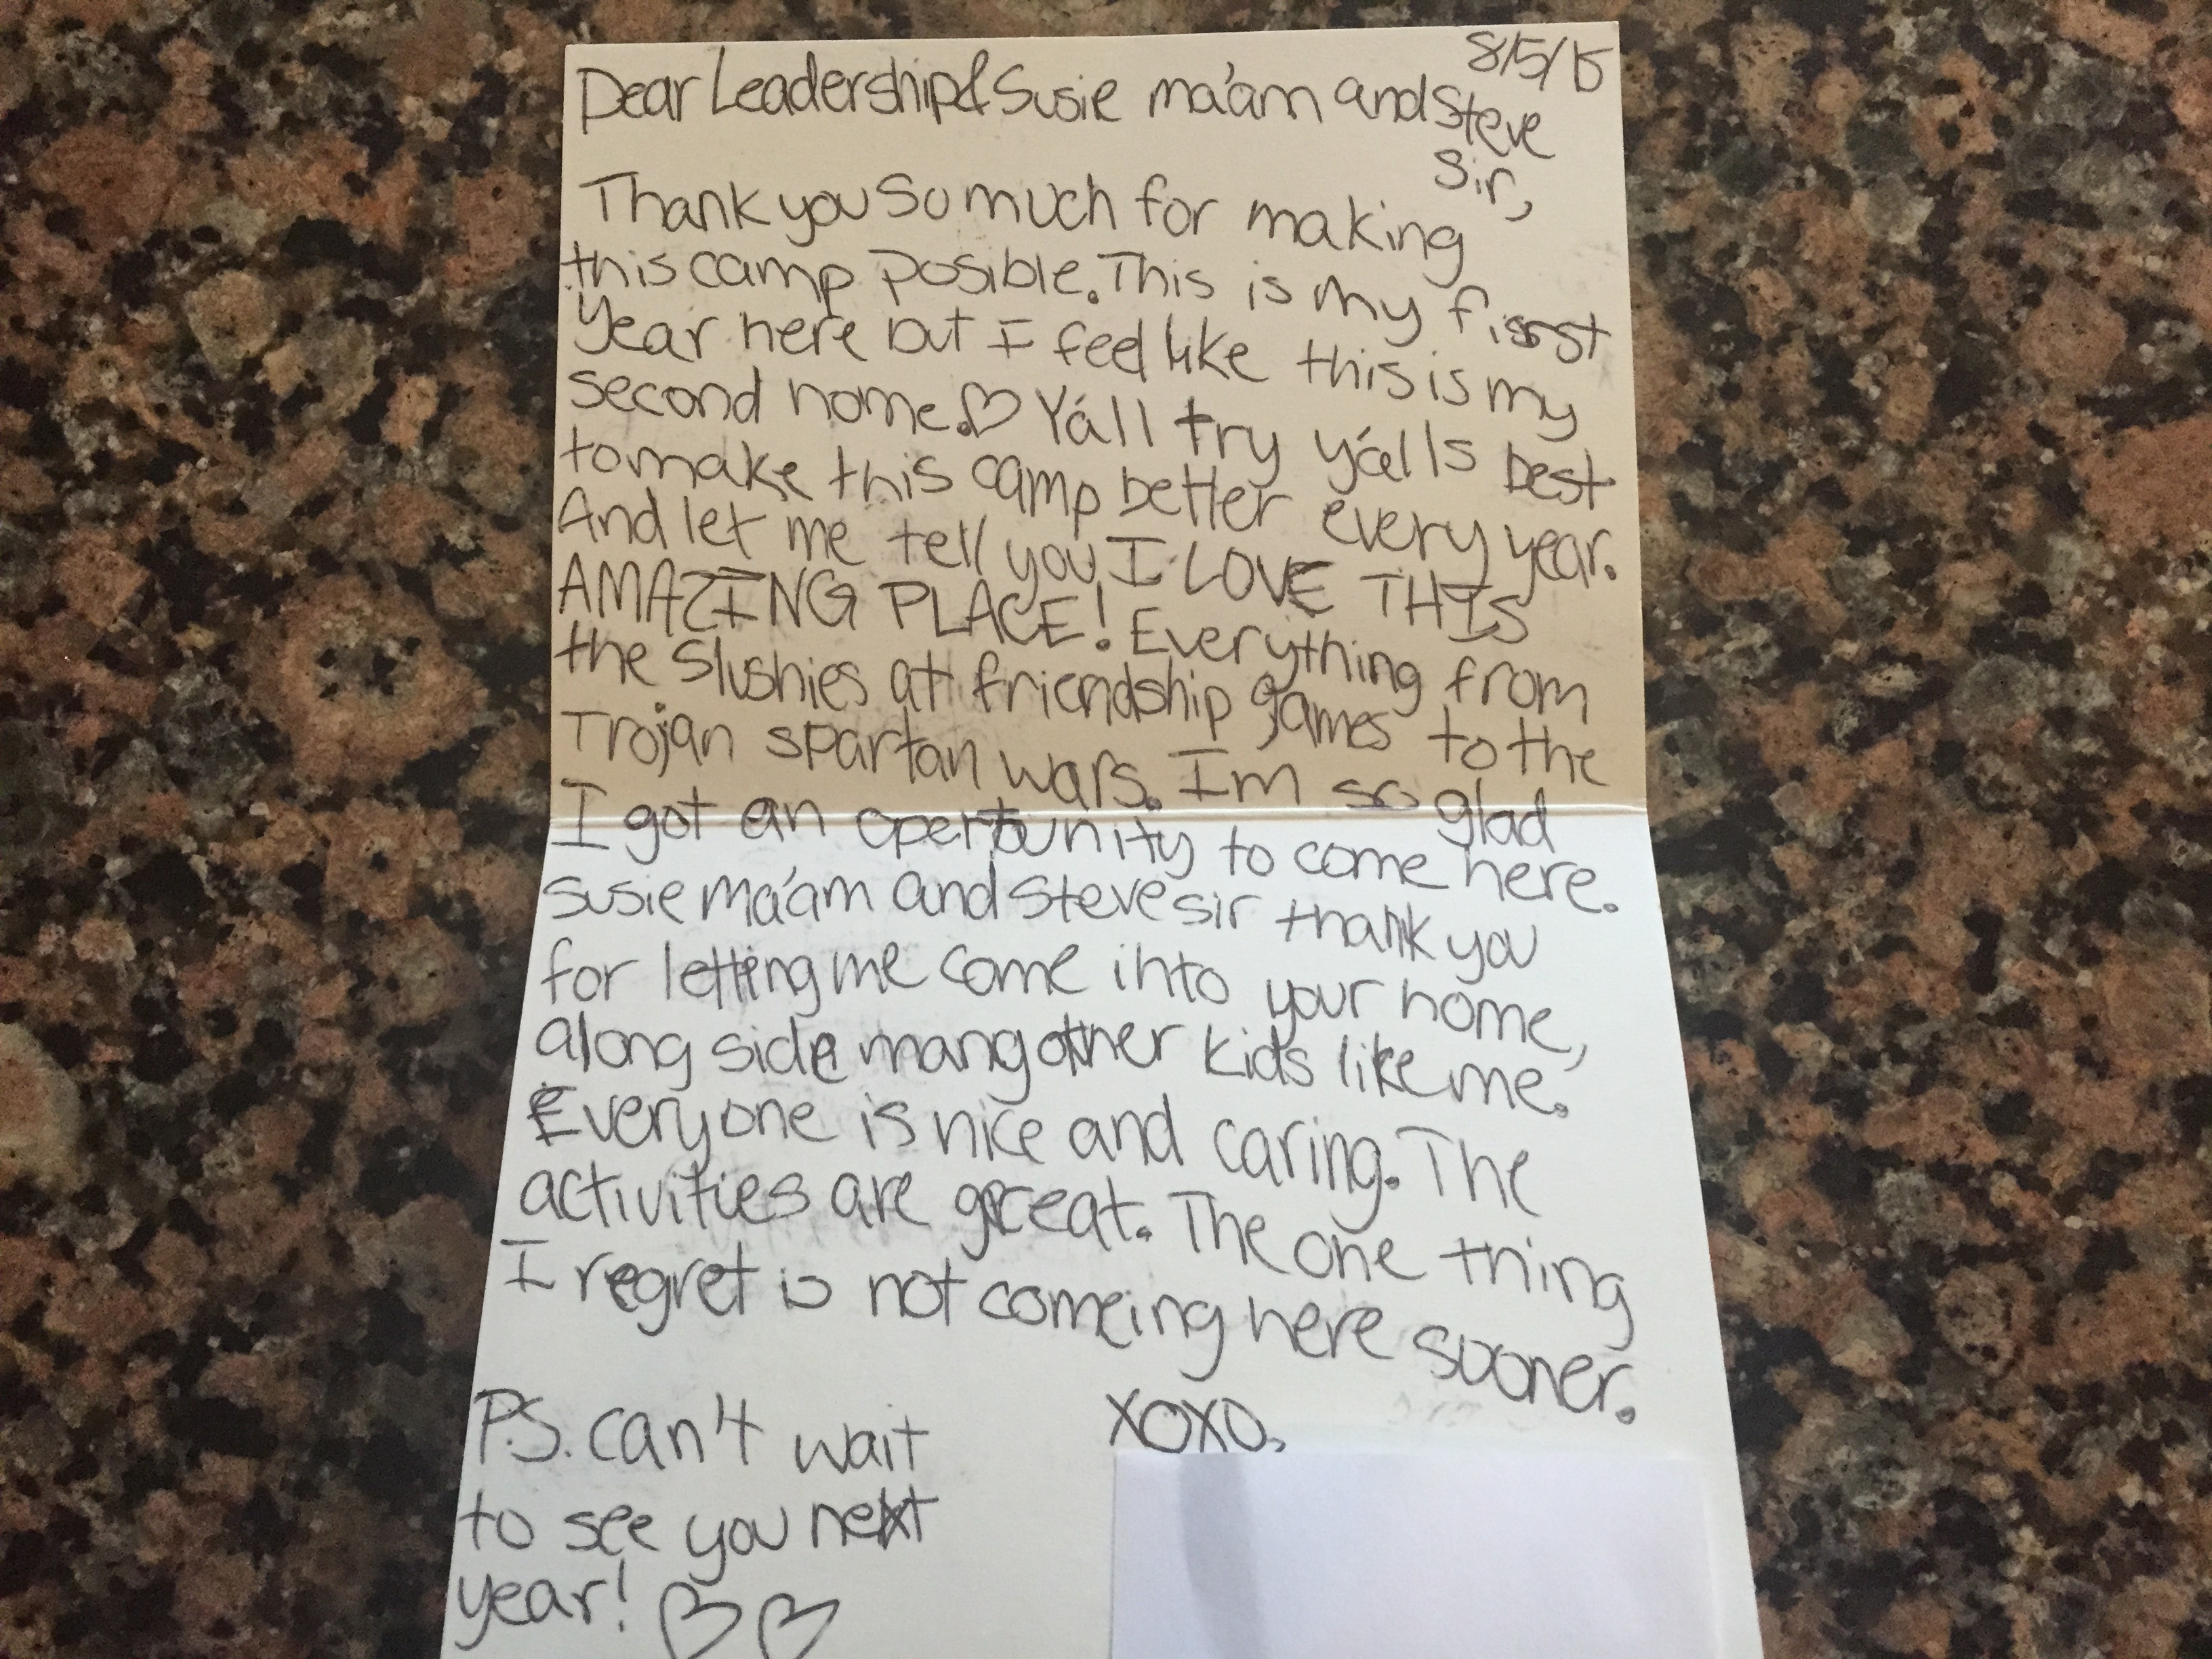 8/5/15
Dear Leadership & Susie ma'am and Steve
Sir,
Thank you so much for making
this camp posible. This is my first
year here but I feel like this is my
second home. ♡ Y'all try y'alls best
to make this camp better every year.
And let me tell you I LOVE THIS
AMAZING PLACE! Everything from
the slushies at friendship games to the
Trojan spartan wars. Im so glad
I got an opertounity to come here.
Susie ma'am and Steve sir thank you
for letting me come into your home,
along side many other kids like me.
Everyone is nice and caring. The
activities are great. The one thing
I regret is not comeing here sooner.
XOXO,
P.S. can't wait
to see you next
year! ♡♡